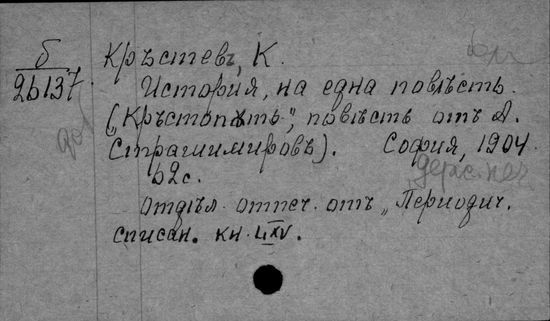 б
26137
Кръстевъ, К.
История, на една повѣсть.
(„Кръстопѫть", повѣсть отъ А.
Страшимировъ). София, 1904.
62с.
Отдѣл. отпеч. отъ „Периодич.
списан. кн. LXV.